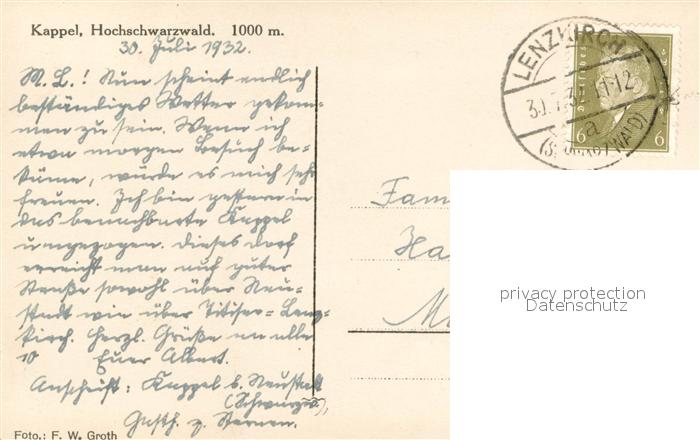 Kappel, Hochschwarzwald. 1000 m.
30. Juli 1932.
M. L.! Nun scheint endlich
beständiges Wetter gekom-
men zu sein. Wenn ich
etwa morgen Besuch be-
käme, würde es mich sehr
freuen. Ich bin gestern in
das benachbarte Kappel
umgezogen. Dieses Dorf
erreicht man auf guter
Straße sowohl über Neu-
stadt wie über Titisee-Lenz-
kirch. Herzl. Grüße an alle
10 Euer Albert.
Anschrift: Kappel b. Neustadt
(Schwarzw.),
Gasth. z. Sternen.
Foto.: F. W. Groth
LENZKIRCH
30.7.32. 11-12
a
(SCHWARZWALD)
Deutsches Reich
6 6
Fam
Ha
M
privacy protection
Datenschutz